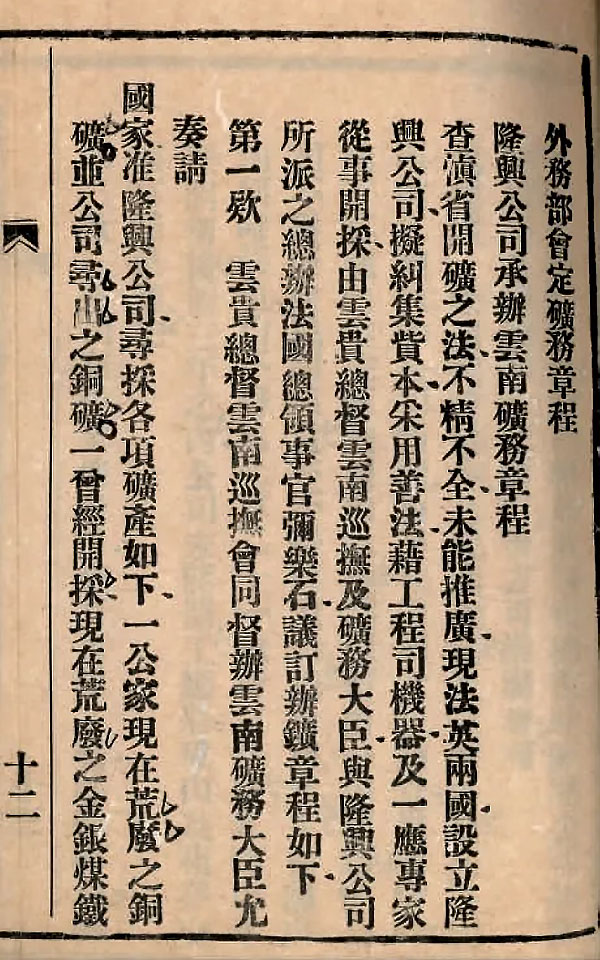 外務部會定礦務章程
隆興公司承辦雲南礦務章程
查滇省開礦之法不精不全未能推廣現法英兩國設立隆
興公司擬糾集貲本采用善法藉工程司機器及一應專家
從事開採由雲貴總督雲南巡撫及礦務大臣與隆興公司
所派之總辦法國總領事官彌樂石議訂辦鑛章程如下
第一欵 雲貴總督雲南巡撫會同督辦雲南礦務大臣允
奏請
國家准隆興公司尋採各項礦產如下一公家現在荒廢之銅
礦並公司尋出之銅礦一曾經開採現在荒廢之金銀煤鐵
十二